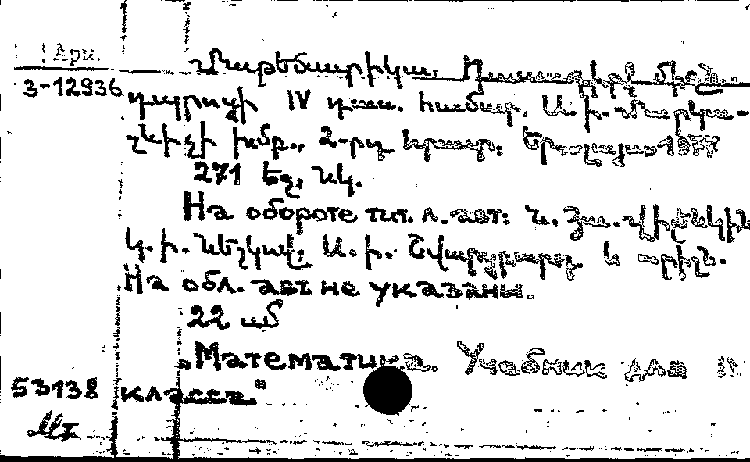 Арм.
Մաթեմատիկա. Դասագիրք միջն.
3-12936 դպրոցի IV դաս. համար. Ա. Ի. Մարկու-
շևիչի խմբ., 2-րդ հրատ. Երևան, 1977
271 էջ, նկ.
На обороте тит. л. авт: Ն. Յա. Վիլենկին,
Կ. Ի. Նեշկով, Ս. Ի. Շվարցբուրդ և ուրիշն.
На обл. авт. не указаны.
22 ամ
„Математика. Учебник для IV
53138 класса"